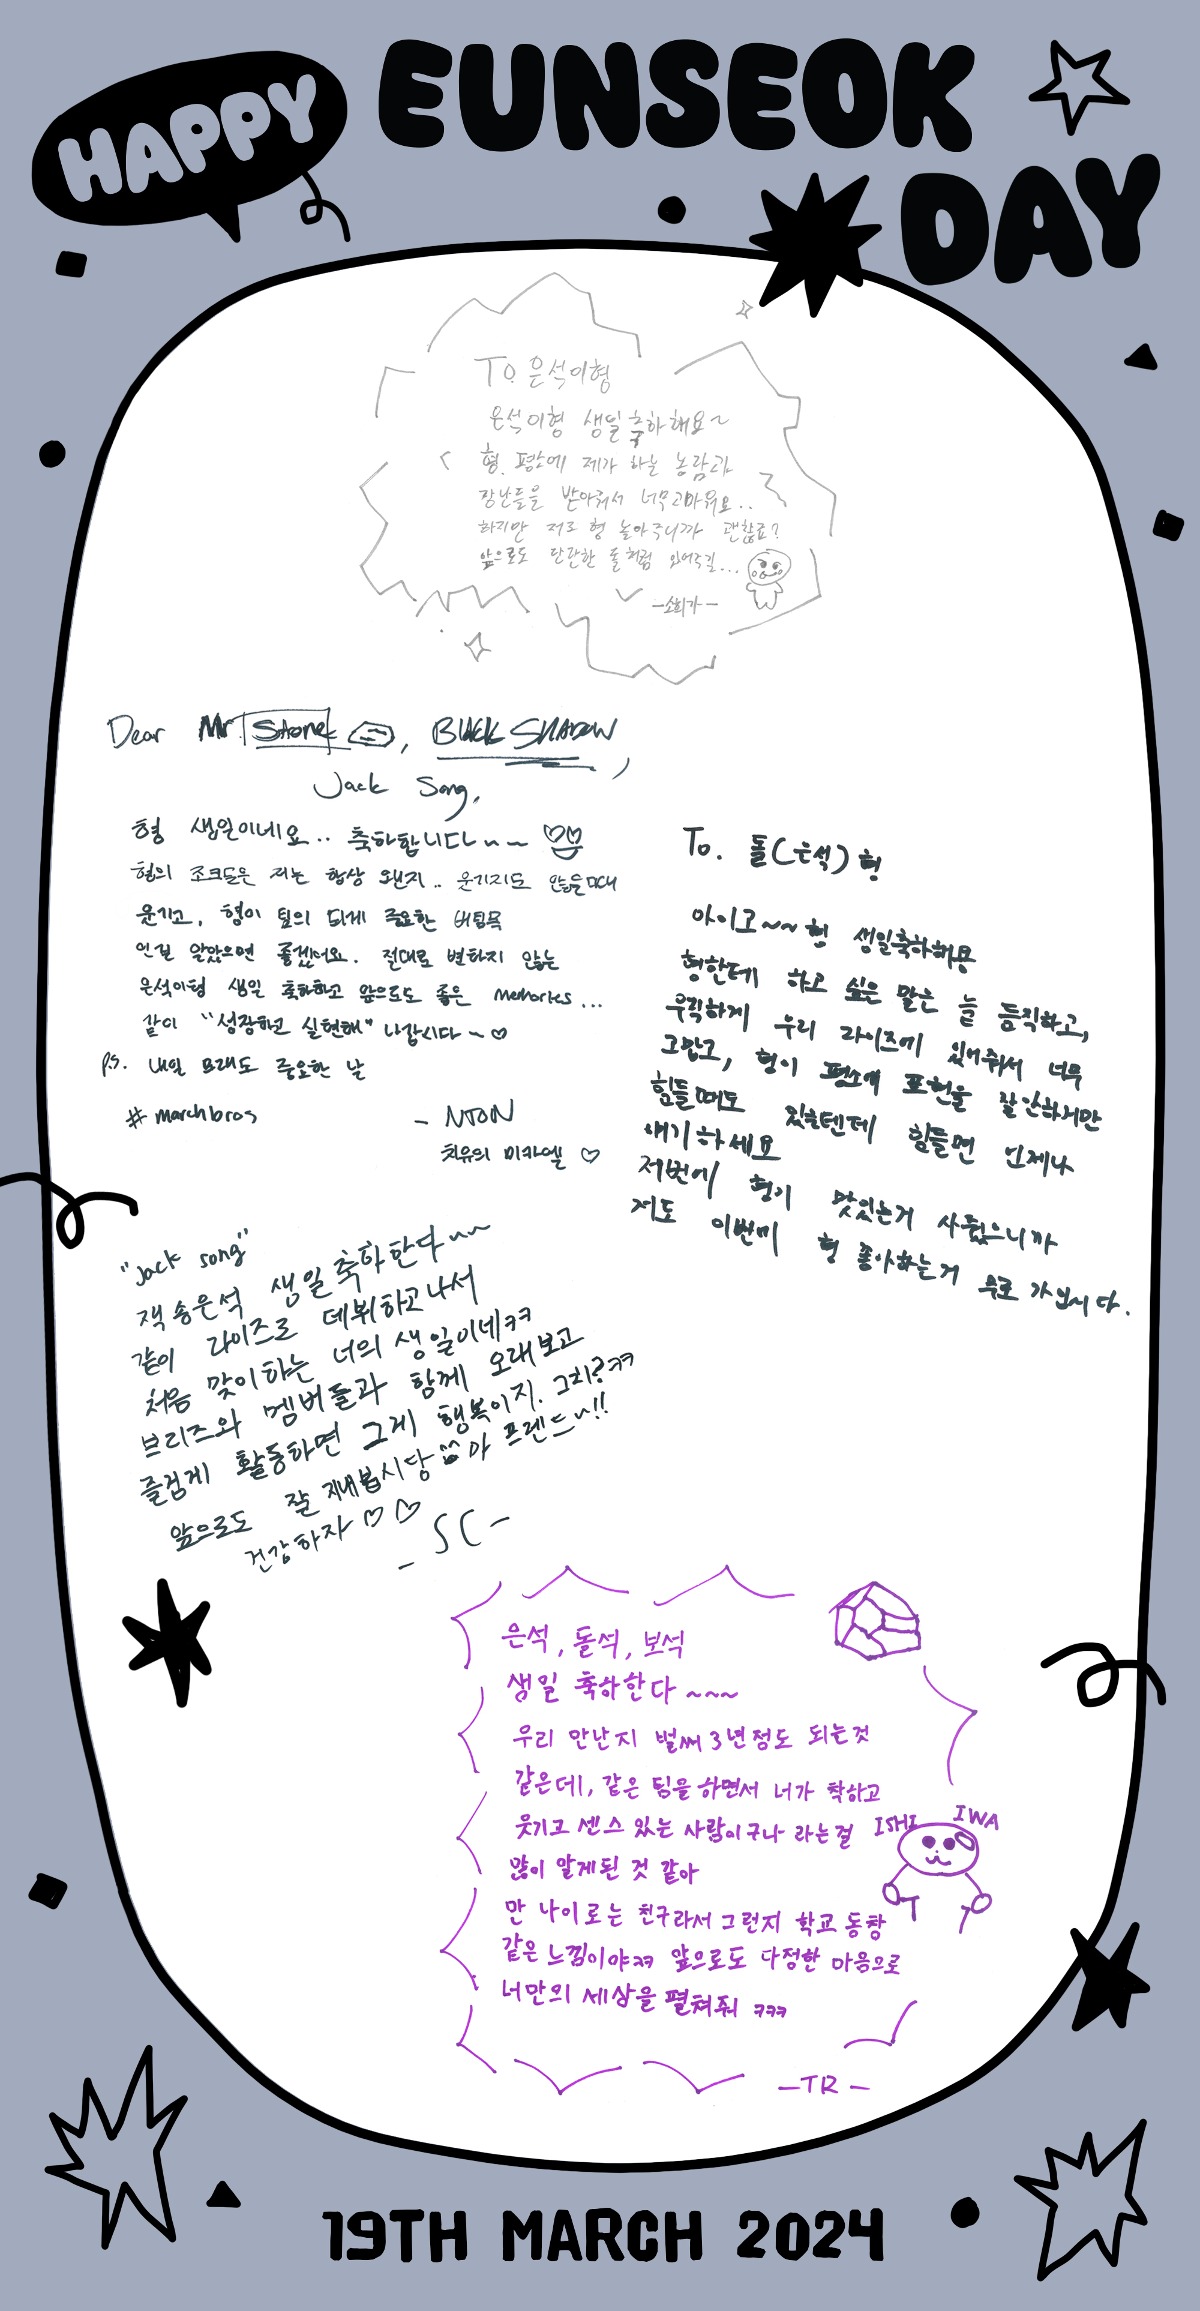 HAPPY
EUNSEOK
DAY
To. 은석이형
은석이형 생일 축하해요~
형. 평소에 제가 하는 농담과
장난들을 받아줘서 너무 고마워요..
하지만 저로 형 놀아주니까 괜찮죠?
앞으로도 단단한 돌처럼 있어주길...
-소희가-
Dear Mr. Stone, BLACK SHADOW,
Jack Song,
형 생일이네요.. 축하합니다~~
형의 조크들은 저는 항상 왠지.. 웃기지도 않을때
웃기고, 형이 팀의 되게 중요한 버팀목
인걸 알았으면 좋겠어요. 절대로 변하지 않는
은석이형 생일 축하하고 앞으로도 좋은 memories...
같이 "성장하고 실현해" 나갑시다~♡
P.S. 내일 모래도 중요한 날
# marchbros
- NTON
치유의 미카엘 ♡
To. 돌(은석)형
아이고~~ 형 생일축하해용
형한테 하고 싶은 말은 늘 듬직하고,
우직하게 우리 라이즈에 있어줘서 너무
고맙고, 형이 평소에 표현을 잘안하지만
힘들때도 있을텐데 힘들면 언제나
얘기하세요
저번에 형이 맛있는거 사줬으니까
저도 이번에 형 좋아하는거 무로 가십시다.
"Jack song"
잭 송은석 생일축하한다~~
같이 라이즈로 데뷔하고나서
처음 맞이하는 너의 생일이네ㅋㅋ
브리즈와 멤버들과 함께 오래보고
즐겁게 활동하면 그게 행복이지. 그치?ㅋㅋ
앞으로도 잘 지내봅시당 마 프렌드~!!
건강하자 ♡♡
- SC -
은석, 돌석, 보석
생일 축하한다 ~~~
우리 만난지 벌써 3년정도 되는것
같은데, 같은 팀을 하면서 너가 착하고
웃기고 센스 있는 사람이구나 라는걸
많이 알게된 것 같아
만 나이로는 친구라서 그런지 학교 동창
같은 느낌이야ㅋㅋ 앞으로도 다정한 마음으로
너만의 세상을 펼쳐줘 ㅋㅋㅋ
ISHI IWA
-TR-
19TH MARCH 2024